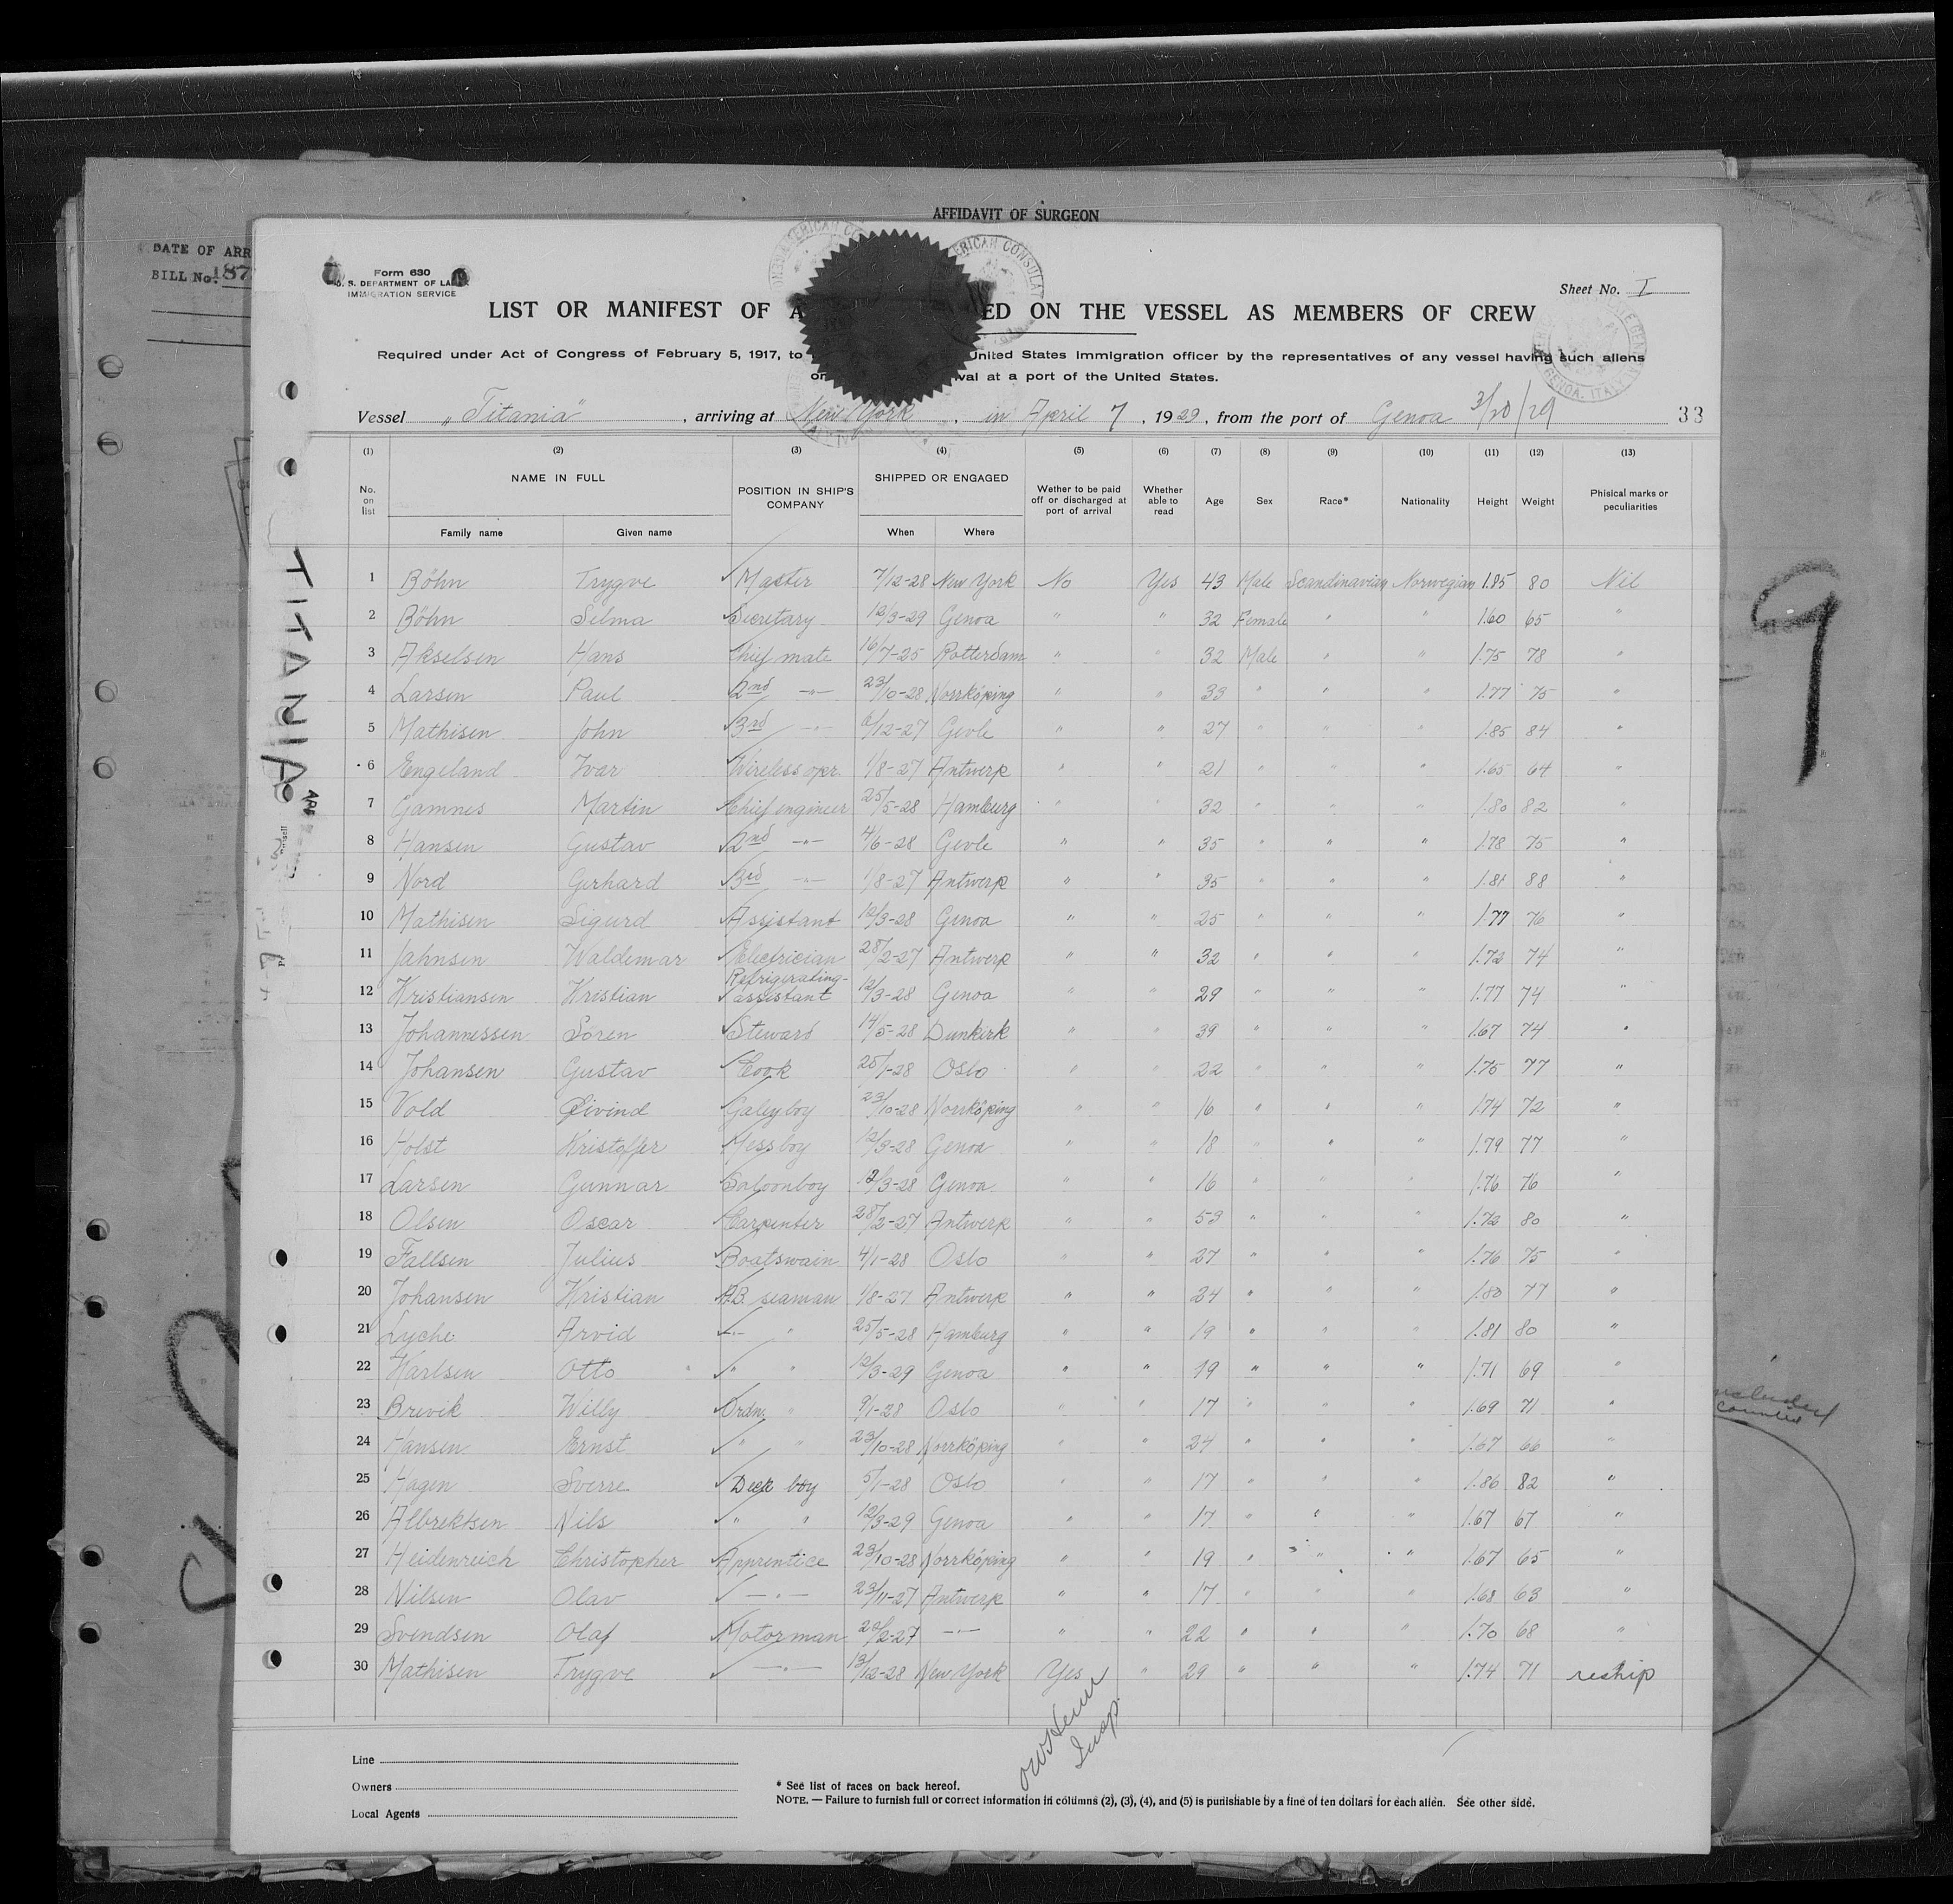 AFFIDAVIT OF SURGEON
DATE OF ARR
BILL No. 187
Form 630
U. S. DEPARTMENT OF LABOR
IMMIGRATION SERVICE
Sheet No. I
LIST OR MANIFEST OF A ED ON THE VESSEL AS MEMBERS OF CREW
Required under Act of Congress of February 5, 1917, to United States Immigration officer by the representatives of any vessel having such aliens
on val at a port of the United States.
Vessel "Titania", arriving at New York, in April 7, 1929, from the port of Genoa 3/20/29 33
(1) (2) (3) (4) (5) (6) (7) (8) (9) (10) (11) (12) (13)
No. on list NAME IN FULL POSITION IN SHIP'S COMPANY SHIPPED OR ENGAGED Wether to be paid off or discharged at port of arrival Whether able to read Age Sex Race* Nationality Height Weight Phisical marks or peculiarities
Family name Given name When Where
1 Böhn Trygve Master 7/12-28 New York No Yes 43 Male Scandinavian Norwegian 1.85 80 Nil
2 Böhn Selma Secretary 12/3-29 Genoa " " 32 Female " " 1.60 65 "
3 Akselsen Hans Chief mate 16/7-25 Rotterdam " " 32 Male " " 1.75 78 "
4 Larsen Paul 2nd -"- 23/10-28 Norrköping " " 33 " " " 1.77 75 "
5 Mathisen John 3rd -"- 6/12-27 Gevle " " 27 " " " 1.85 84 "
6 Engeland Ivar Wireless opr. 1/8-27 Antwerp " " 21 " " " 1.65 64 "
7 Gamnes Martin Chief engineer 25/5-28 Hamburg " " 32 " " " 1.80 82 "
8 Hansen Gustav 2nd -"- 4/6-28 Gevle " " 35 " " " 1.78 75 "
9 Nord Gerhard 3rd -"- 1/8-27 Antwerp " " 35 " " " 1.81 88 "
10 Mathisen Sigurd Assistant 12/3-28 Genoa " " 25 " " " 1.77 76 "
11 Jahnsen Waldemar Electrician 28/2-27 Antwerp " " 32 " " " 1.72 74 "
12 Kristiansen Kristian Refrigerating-assistant 12/3-28 Genoa " " 29 " " " 1.77 74 "
13 Johannessen Sören Steward 14/5-28 Dunkerk " " 39 " " " 1.67 74 "
14 Johansen Gustav Cook 25/1-28 Oslo " " 22 " " " 1.75 77 "
15 Vold Eivind Galeyboy 23/10-28 Norrköping " " 16 " " " 1.74 72 "
16 Holst Kristoffer Messboy 12/3-28 Genoa " " 18 " " " 1.79 77 "
17 Larsen Gunnar Saloonboy 12/3-28 Genoa " " 16 " " " 1.76 76 "
18 Olsen Oscar Carpenter 28/2-27 Antwerp " " 53 " " " 1.72 80 "
19 Fallsen Julius Boatswain 4/1-28 Oslo " " 27 " " " 1.76 75 "
20 Johansen Kristian A.B. seaman 1/8-27 Antwerp " " 24 " " " 1.80 77 "
21 Lyche Arvid -"- " 25/5-28 Hamburg " " 19 " " " 1.81 80 "
22 Karlsen Otto " " 12/3-29 Genoa " " 19 " " " 1.71 69 "
23 Brevik Willy Ordn. " 9/1-28 Oslo " " 17 " " " 1.69 71 "
24 Hansen Ernst " " 23/10-28 Norrköping " " 24 " " " 1.67 66 "
25 Hagen Sverre Deck boy 5/1-28 Oslo " " 17 " " " 1.86 82 "
26 Albrektsen Nils " " 12/3-29 Genoa " " 17 " " " 1.67 67 "
27 Heidenreich Christopher Apprentice 23/10-28 Norrköping " " 19 " " " 1.67 65 "
28 Nilsen Olav -"- 23/11-27 Antwerp " " 17 " " " 1.68 63 "
29 Svendsen Olaf Motorman 28/2-27 -"- " " 22 " " " 1.70 68 "
30 Mathisen Trygve -"- 13/12-28 New York Yes " 29 " " " 1.74 71 reship
Insp.
Line
Owners
Local Agents
* See list of races on back hereof.
NOTE. — Failure to furnish full or correct information in columns (2), (3), (4), and (5) is punishable by a fine of ten dollars for each alien. See other side.
TITANIA
9